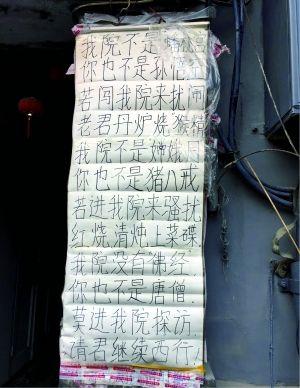 我院不是
你也不是孙悟空
若闯我院来扰闹
老君丹炉烧猴精
我院不是嫦娥月
你也不是猪八戒
若进我院来骚扰
红烧清炖上菜碟.
我院没有佛经
你也不是唐僧.
莫进我院探访
请君继续西行!